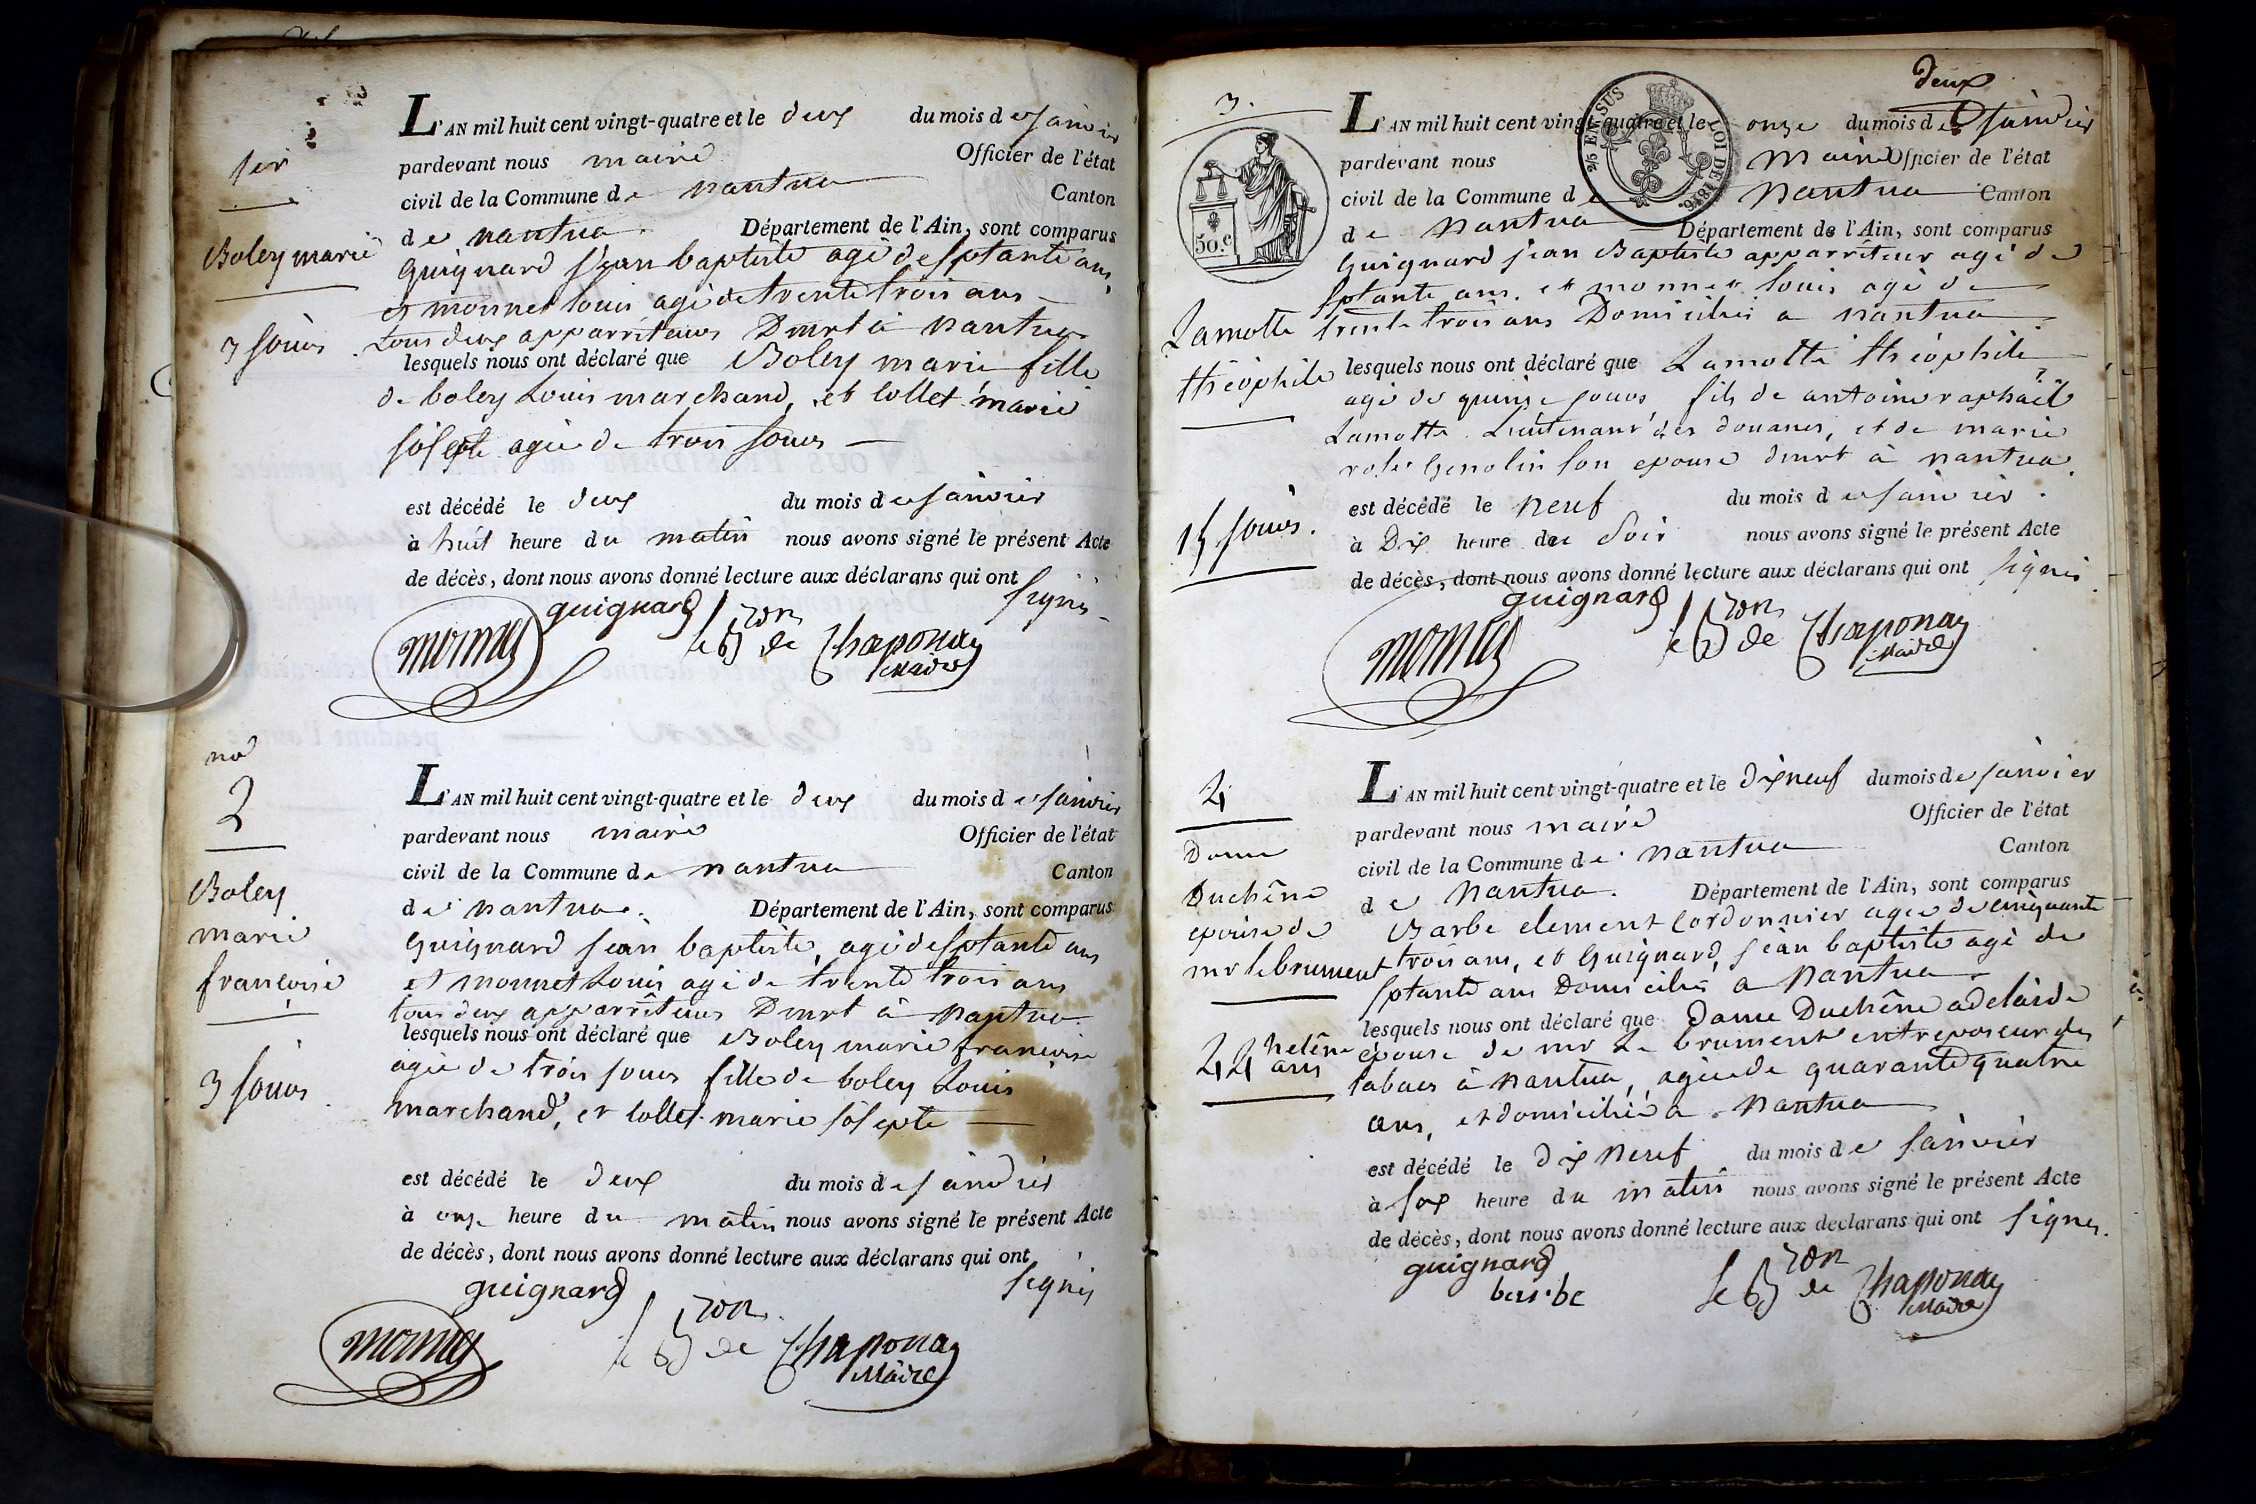 1er
Boley marie
3 jours
L'AN mil huit cent vingt-quatre et le deux du mois de janvier
pardevant nous maire Officier de l'état
civil de la Commune de nantua Canton
de nantua. Département de l'Ain, sont comparus
Guignard jean baptiste agé de septante ans,
et monnet louis agé de trente trois ans
tous deux apparriteurs Dmrt à nantua
lesquels nous ont déclaré que Boley marie fille
de boley Louis marchand, et Collet marie
josepte agée de trois jours
est décédé le deux du mois de janvier
à huit heure du matin nous avons signé le présent Acte
de décès, dont nous avons donné lecture aux déclarans qui ont
signés
guignard
monnet le Bon de Chaponay
Maire
no
2
Boley
marie
françoise
3 jours
L'AN mil huit cent vingt-quatre et le deux du mois de janvier
pardevant nous maire Officier de l'état
civil de la Commune de nantua Canton
de nantua. Département de l'Ain, sont comparus
Guignard jean baptiste, agé de septante ans
et monnet Louis agé de trente trois ans
tous deux apparriteurs Dmrt à nantua
lesquels nous ont déclaré que Boley marie françoise
agée de trois jours fille de boley Louis
marchand, et Collet marie josepte
est décédé le deux du mois de janvier
à onze heure du matin nous avons signé le présent Acte
de décès, dont nous avons donné lecture aux déclarans qui ont
signés
guignard
monnet le Bon de Chaponay
Maire
deux
3.
50.c
25 EN SUS LOI DE 1816.
Lamotte
théophile
15 jours.
L'AN mil huit cent vingt-quatre et le onze du mois de janvier
pardevant nous maire Officier de l'état
civil de la Commune de nantua Canton
de nantua Département de l'Ain, sont comparus
Guignard jean Baptiste apparriteur agé de
septante ans. et monnet louis agé de
trente trois ans Domiciliés a nantua
lesquels nous ont déclaré que Lamotte théophile
agé de quinze jours fils de antoine raphaël
Lamotte Lieutenant des douanes, et de marie
rose Genolin son epouse dmrt à nantua.
est décédé le neuf du mois de janvier.
à Dix heure du soir nous avons signé le présent Acte
de décès, dont nous avons donné lecture aux déclarans qui ont signés
guignard
monnet le Bon de Chaponay
Maire
4
Dame
Duchêne
epouse de
mr lebrument
44 ans
L'AN mil huit cent vingt-quatre et le dixneuf du mois de janvier
pardevant nous maire Officier de l'état
civil de la Commune de nantua Canton
de nantua. Département de l'Ain, sont comparus
Barbe clement Cordonnier agé de cinquante
trois ans, et Guignard, jean baptiste agé de
septante ans Domiciliés a nantua.
lesquels nous ont déclaré que Dame Duchêne adelaïde
helêne épouse de mr Le brument entreposeur des
tabacs à nantua, agée de quarante quatre
ans, et domiciliée a nantua
est décédé le dix neuf du mois de janvier
à six heure du matin nous avons signé le présent Acte
de décès, dont nous avons donné lecture aux déclarans qui ont signés.
guignard
barbe le Bon de Chaponay
Maire